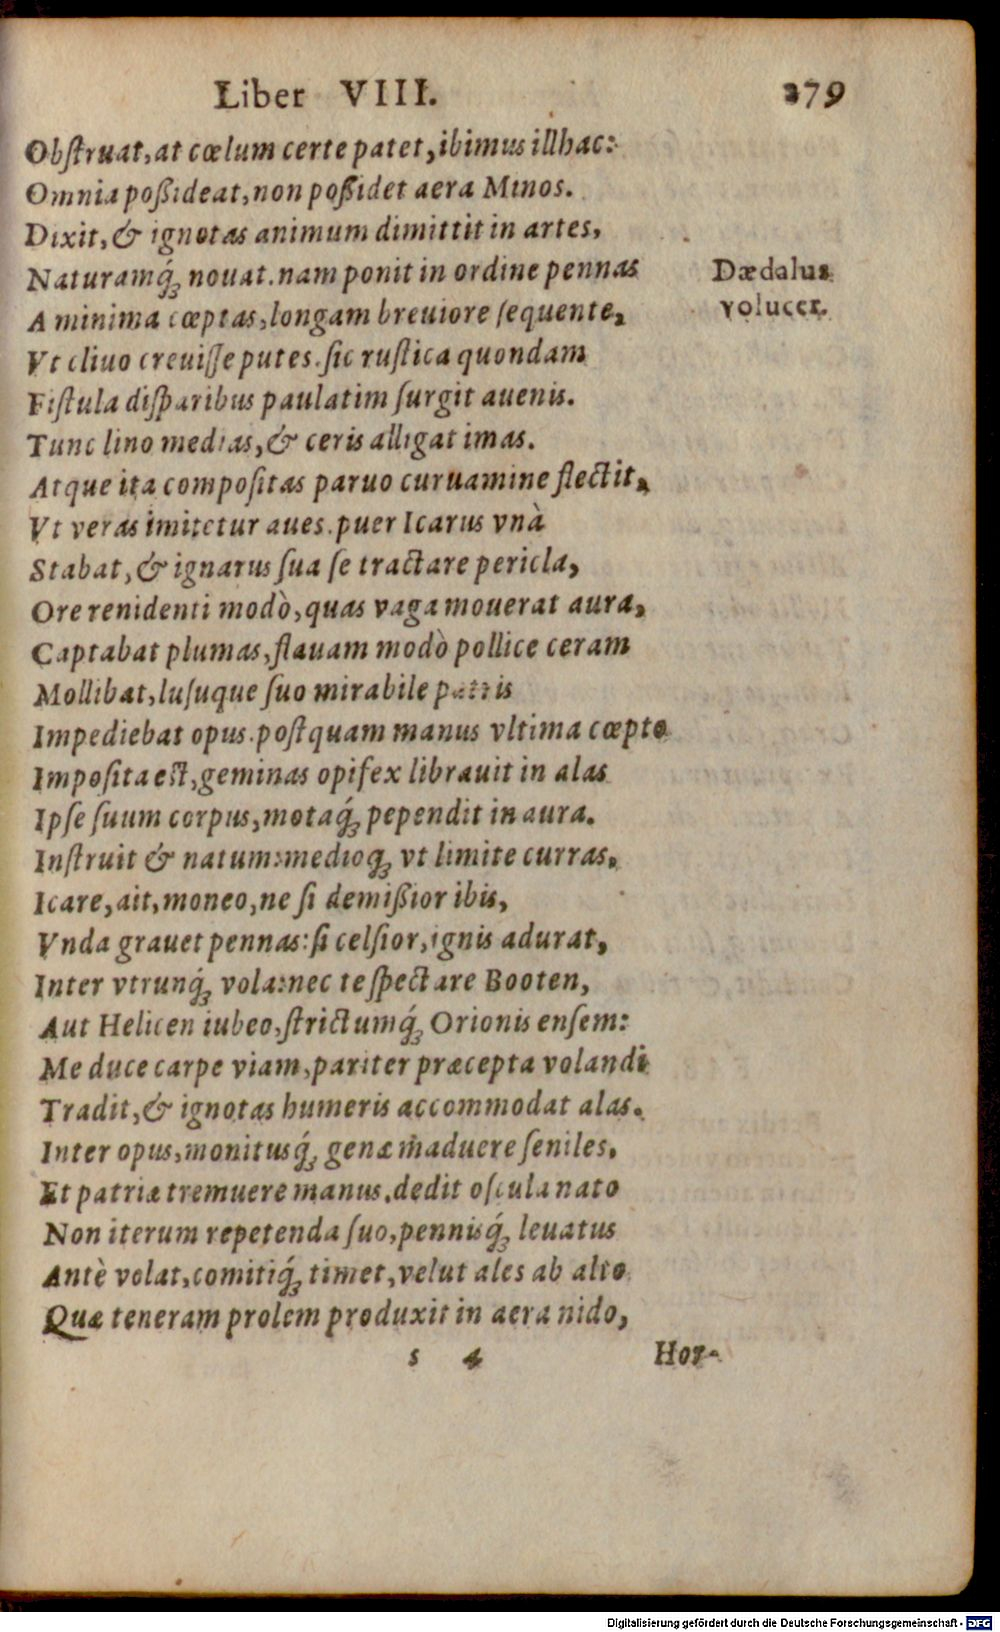 Liber VIII. 279
Obſtruat, at cœlum certe patet, ibimus illhac:
Omnia poßideat, non poßidet aera Minos.
Dixit, & ignotas animum dimittit in artes,
Naturamq́ꝫ nouat. nam ponit in ordine pennas
Dædalus
A minima cœptas, longam breuiore ſequente,
volucer.
Vt cliuo creuiſſe putes. ſic ruſtica quondam
Fiſtula diſparibus paulatim ſurgit auenis.
Tunc lino medias, & ceris alligat imas.
Atque ita compoſitas paruo curuamine flectit,
Vt veras imitetur aues. puer Icarus vnà
Stabat, & ignarus ſua ſe tractare pericla,
Ore renidenti modò, quas vaga mouerat aura,
Captabat plumas, flauam modò pollice ceram
Mollibat, luſuque ſuo mirabile patris
Impediebat opus. poſtquam manus vltima cœpto
Impoſita eſt, geminas opifex librauit in alas
Ipſe ſuum corpus, motaq́ꝫ pependit in aura.
Inſtruit & natum: medioqꝫ vt limite curras,
Icare, ait, moneo, ne ſi demißior ibis,
Vnda grauet pennas: ſi celſior, ignis adurat,
Inter vtrunq́ꝫ vola: nec te ſpectare Booten,
Aut Helicen iubeo, ſtrictumq́ꝫ Orionis enſem:
Me duce carpe viam, pariter præcepta volandi
Tradit, & ignotas humeris accommodat alas.
Inter opus, monitusq́ꝫ genæ maduere ſeniles,
Et patriæ tremuere manus. dedit oſcula nato
Non iterum repetenda ſuo, pennisq́ꝫ leuatus
Antè volat, comitiq́ꝫ timet, velut ales ab alto
Quæ teneram prolem produxit in aera nido,
s 4 Hor-
Digitalisierung gefördert durch die Deutsche Forschungsgemeinschaft - DFG